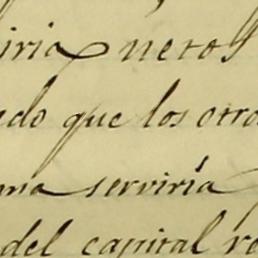 iria netos
ndo que los otro
ma serviría
del capital re